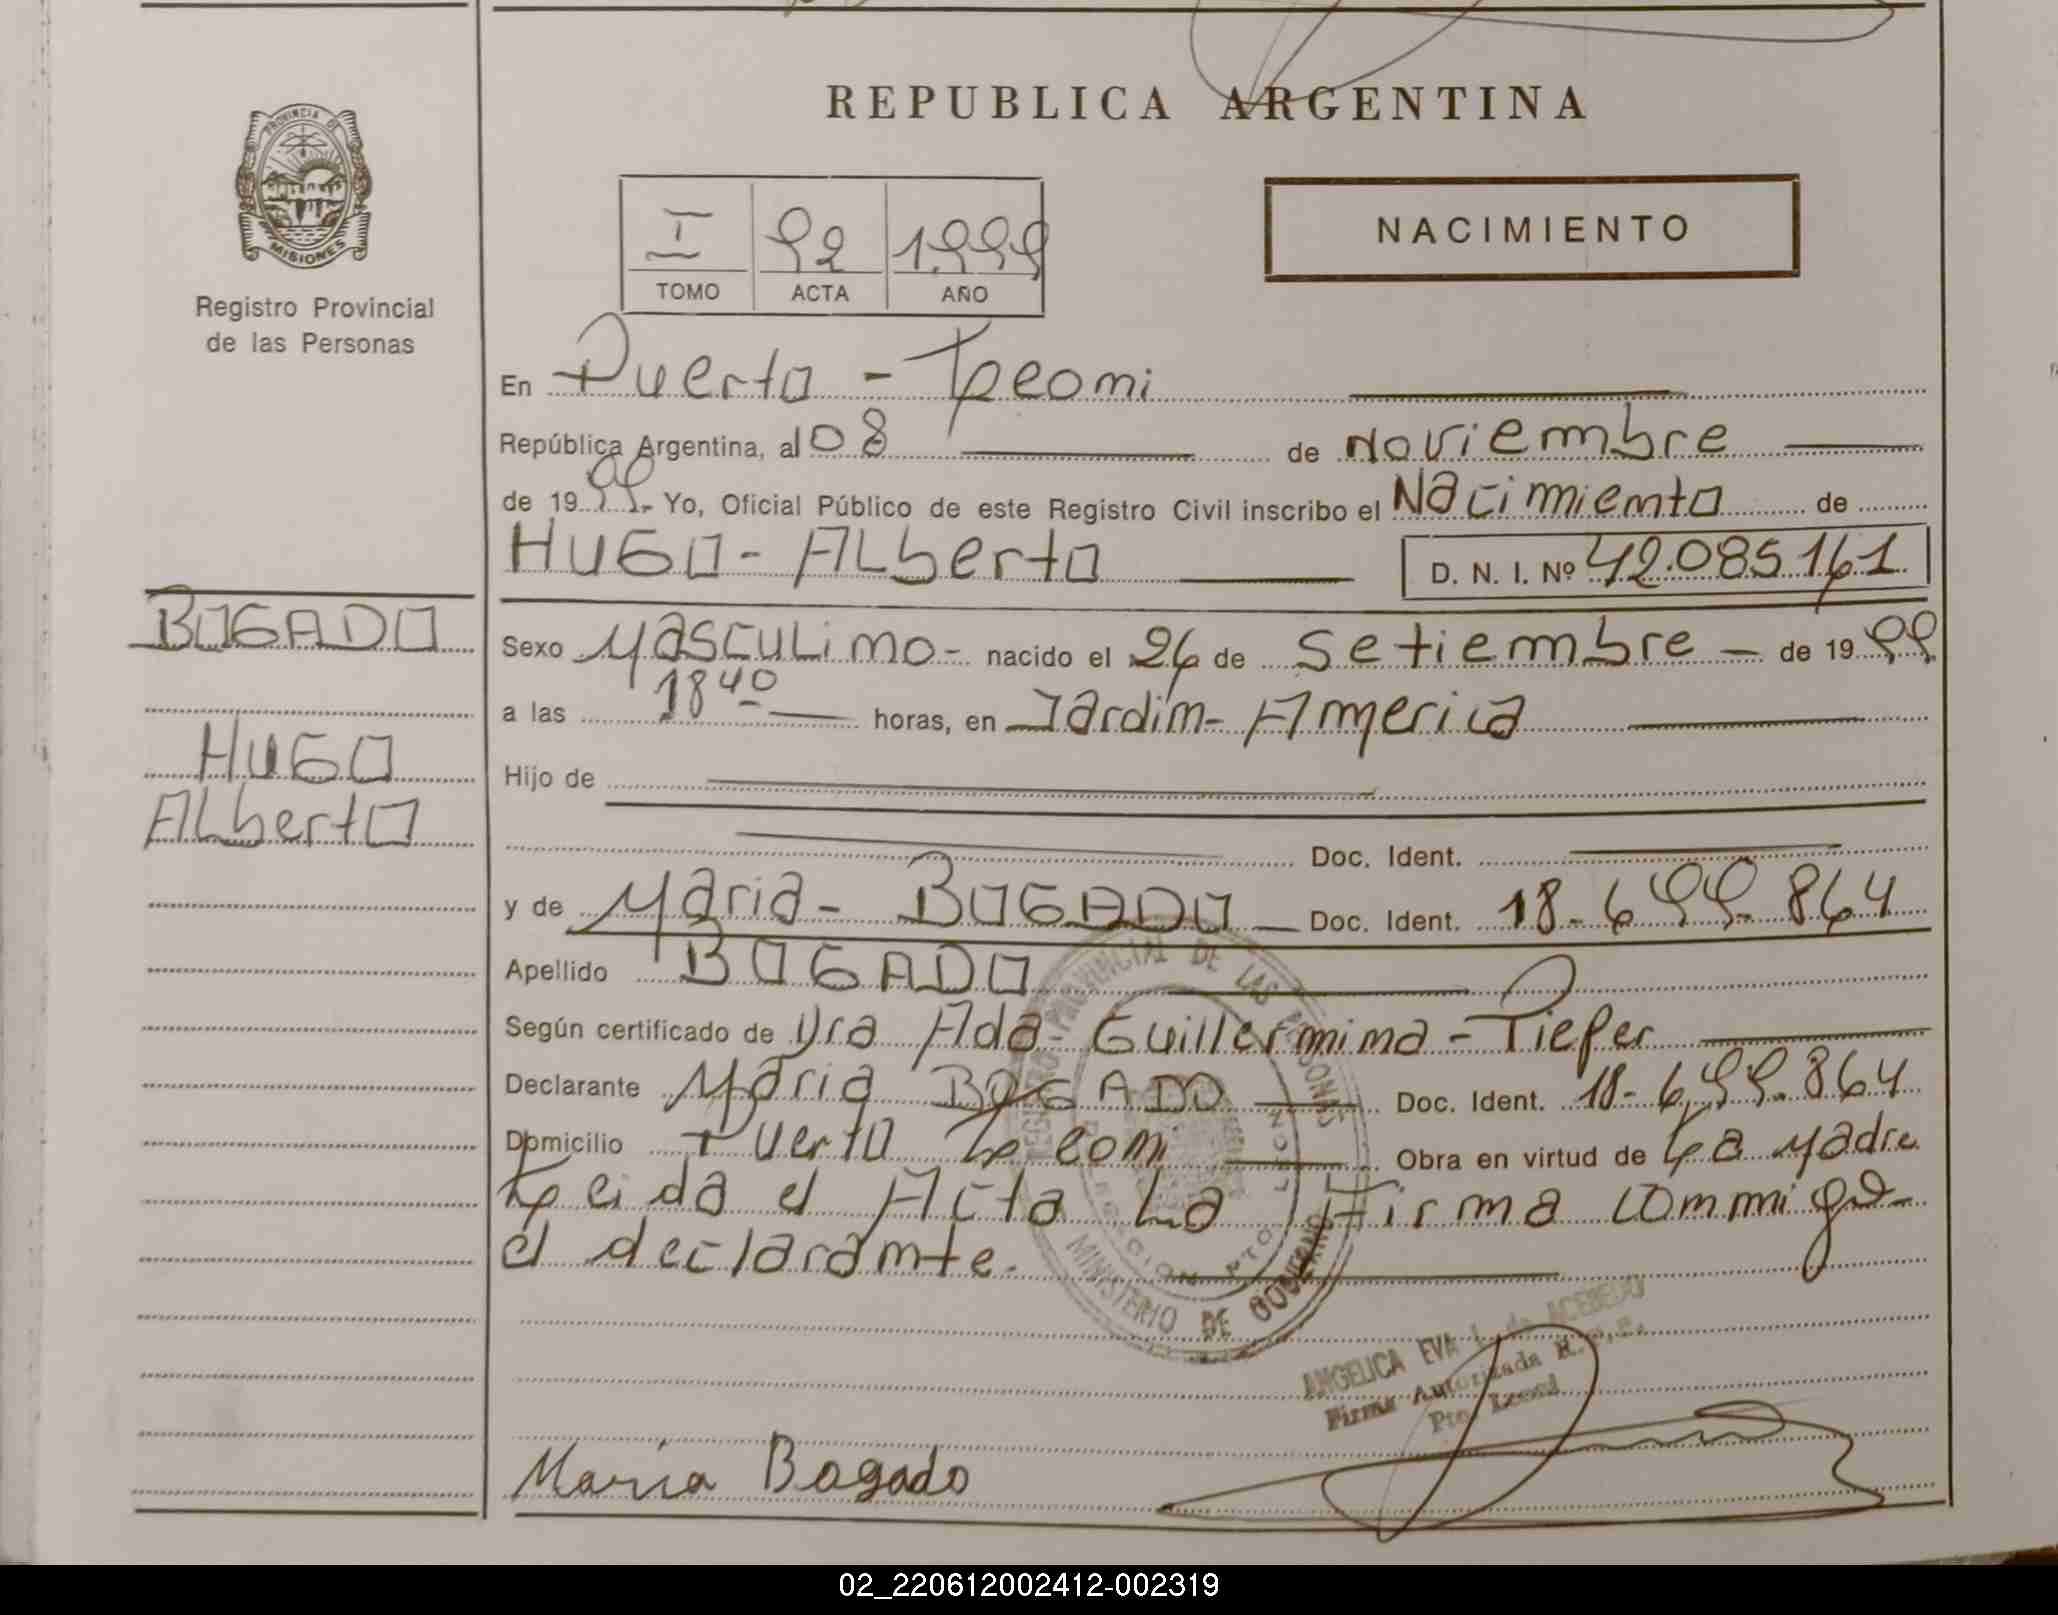 REPUBLICA ARGENTINA
PROVINCIA DE
MISIONES
Registro Provincial
de las Personas
I 92 1.999
TOMO ACTA AÑO
NACIMIENTO
En Puerto - Leoni
República Argentina, al 08 de Noviembre
de 1999.- Yo, Oficial Público de este Registro Civil inscribo el Nacimiento de
HUGO - ALberto D. N. I. Nº 42.085.161
BOGADO
HUGO
ALberto
Sexo MasCULino - nacido el 26 de Setiembre - de 1999
a las 18 40 horas, en Jardin - America
Hijo de
Doc. Ident.
y de Maria - BOGADO Doc. Ident. 18-699.864
Apellido BOGADO
Según certificado de Dra Ada Guillermina - Piefer
Declarante Maria BOGADO Doc. Ident. 18-699.864
Domicilio Puerto Leoni Obra en virtud de La Madre
Leida el Acta La Firma conmigo
el declarante.
REGISTRO PROVINCIAL DE LAS PERSONAS
MINISTERIO DE GOBIERNO
ANGELICA EVA L. de ACEBEDO
Firma Autorizada
Pto. Leoni
María Bogado
02_220612002412-002319